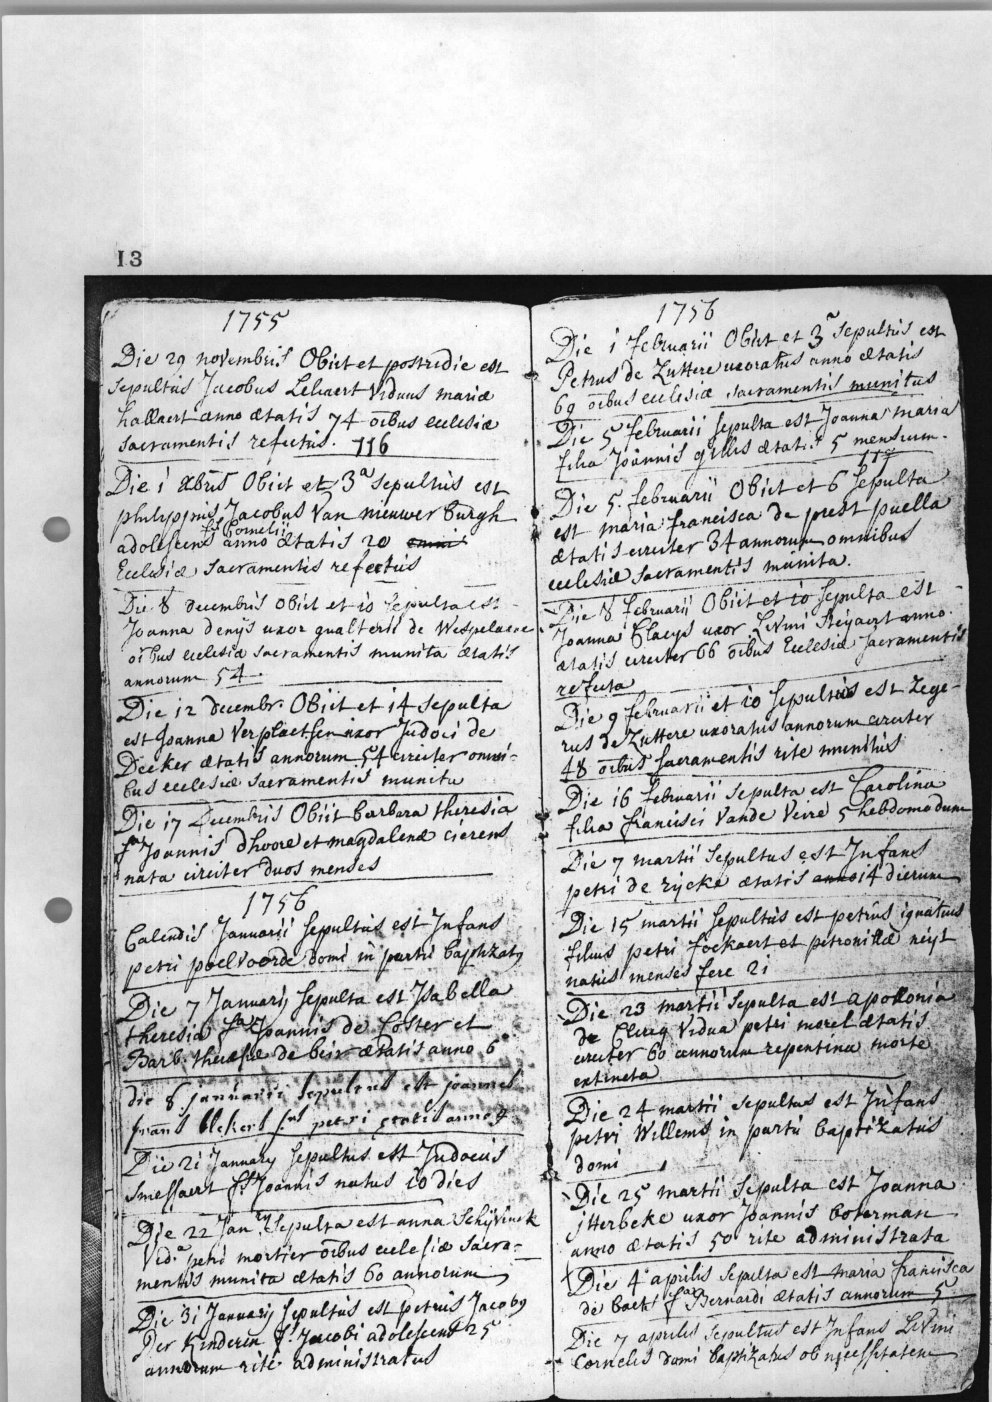 13
1755
Die 29 novembris Obiit et postridie est
sepultus Jacobus Lehaert Viduus mariæ
hallaert anno ætatis 74 oîbus ecclesiæ
sacramentis refectus. 116
Die i xbris Obiit et 3ª sepultus est
philyppus Jacobus Van nieuwer burgh
fs Cornelii
adolescens anno ætatis 20 omni
Ecclesiæ sacramentis refectus
Die 8 decembris obiit et io sepulta est
Joanna denijs uxor gualterii de Wespelaere
oîbus ecclesiæ sacramentis munita ætatis
annorum 54.
Die 12 decembr. Obiit et i4 sepulta
est Joanna Verplaetsen uxor Judoci de
Decker ætatis annorum 54 circiter omni-
bus ecclesiæ sacramentis munita
Die i7 Decembris Obiit barbara theresia
fª Joannis dhoore et magdalenæ cierens
nata circiter duos menses
1756
Calendis Januarii sepultus est Infans
petri poelvoorde domi in partu baptizatus
Die 7 Januarij sepulta est Isabella
theresia fª Joannis de Coster et
Barb. theresiæ de beir ætatis anno 6º
die 8 januarii sepultus est joannes
frans blekers fus petri ætatis anno 9
Die 2i January sepultus est Judocus
Smessaert fs Joannis natus io dies
Die 22 Jan.ry sepulta est anna Schijvinck
Vid.ª petri mortier oîbus ecclesiæ sacra-
mentis munita ætatis 60 annorum
Die 3i Januarij sepultus est petrus Jacobus
Der Kinderen fs Jacobi adolescens 25
annorum rite administratus
1756
Die i februarii Obiit et 3ª sepultus est
Petrus de Zuttere uxoratus anno ætatis
69 oîbus ecclesiæ sacramentis munitus
Die 5 februarii sepulta est Joanna maria
filia Joannis gillis ætatis 5 mensium.
117
Die 5. februarii Obiit et 6 sepulta
est maria francisca de prest puella
ætatis circiter 34 annorum omnibus
ecclesiæ sacramentis munita.
Die 8 februarii Obiit et io sepulta est
Joanna Claeys uxor Livini Steyaert anno
ætatis circiter 66 oîbus Ecclesiæ sacramentis
refecta
Die 9 februarii et io sepultus est Zege-
rus de Zuttere uxoratus annorum circiter
48 oîbus sacramentis rite munitus
Die 16 februarii sepulta est Carolina
filia francisci Vande Veire 5 hebdomadum
Die 7 martii sepultus est Infans
petri de rijcke ætatis anno i4 dierum
Die 15 martii sepultus est petrus ignatius
filius petri fockaert et petronillæ neijt
natus menses fere 2i
Die 23 martii sepulta est apollonia
de Clercq Vidua petri morel ætatis
circiter 60 annorum repentina morte
extincta
Die 24 martii sepultus est Infans
petri Willems in partu baptizatus
domi
Die 25 martii sepulta est Joanna
jtterbeke uxor Joannis boterman
anno ætatis 50 rite administrata
Die 4ª aprilis sepulta est maria francisca
de backer fª Bernardi ætatis annorum 5
Die 7 aprilis sepultus est Infans Livini
Cornelis domi baptizatus ob necessitatem